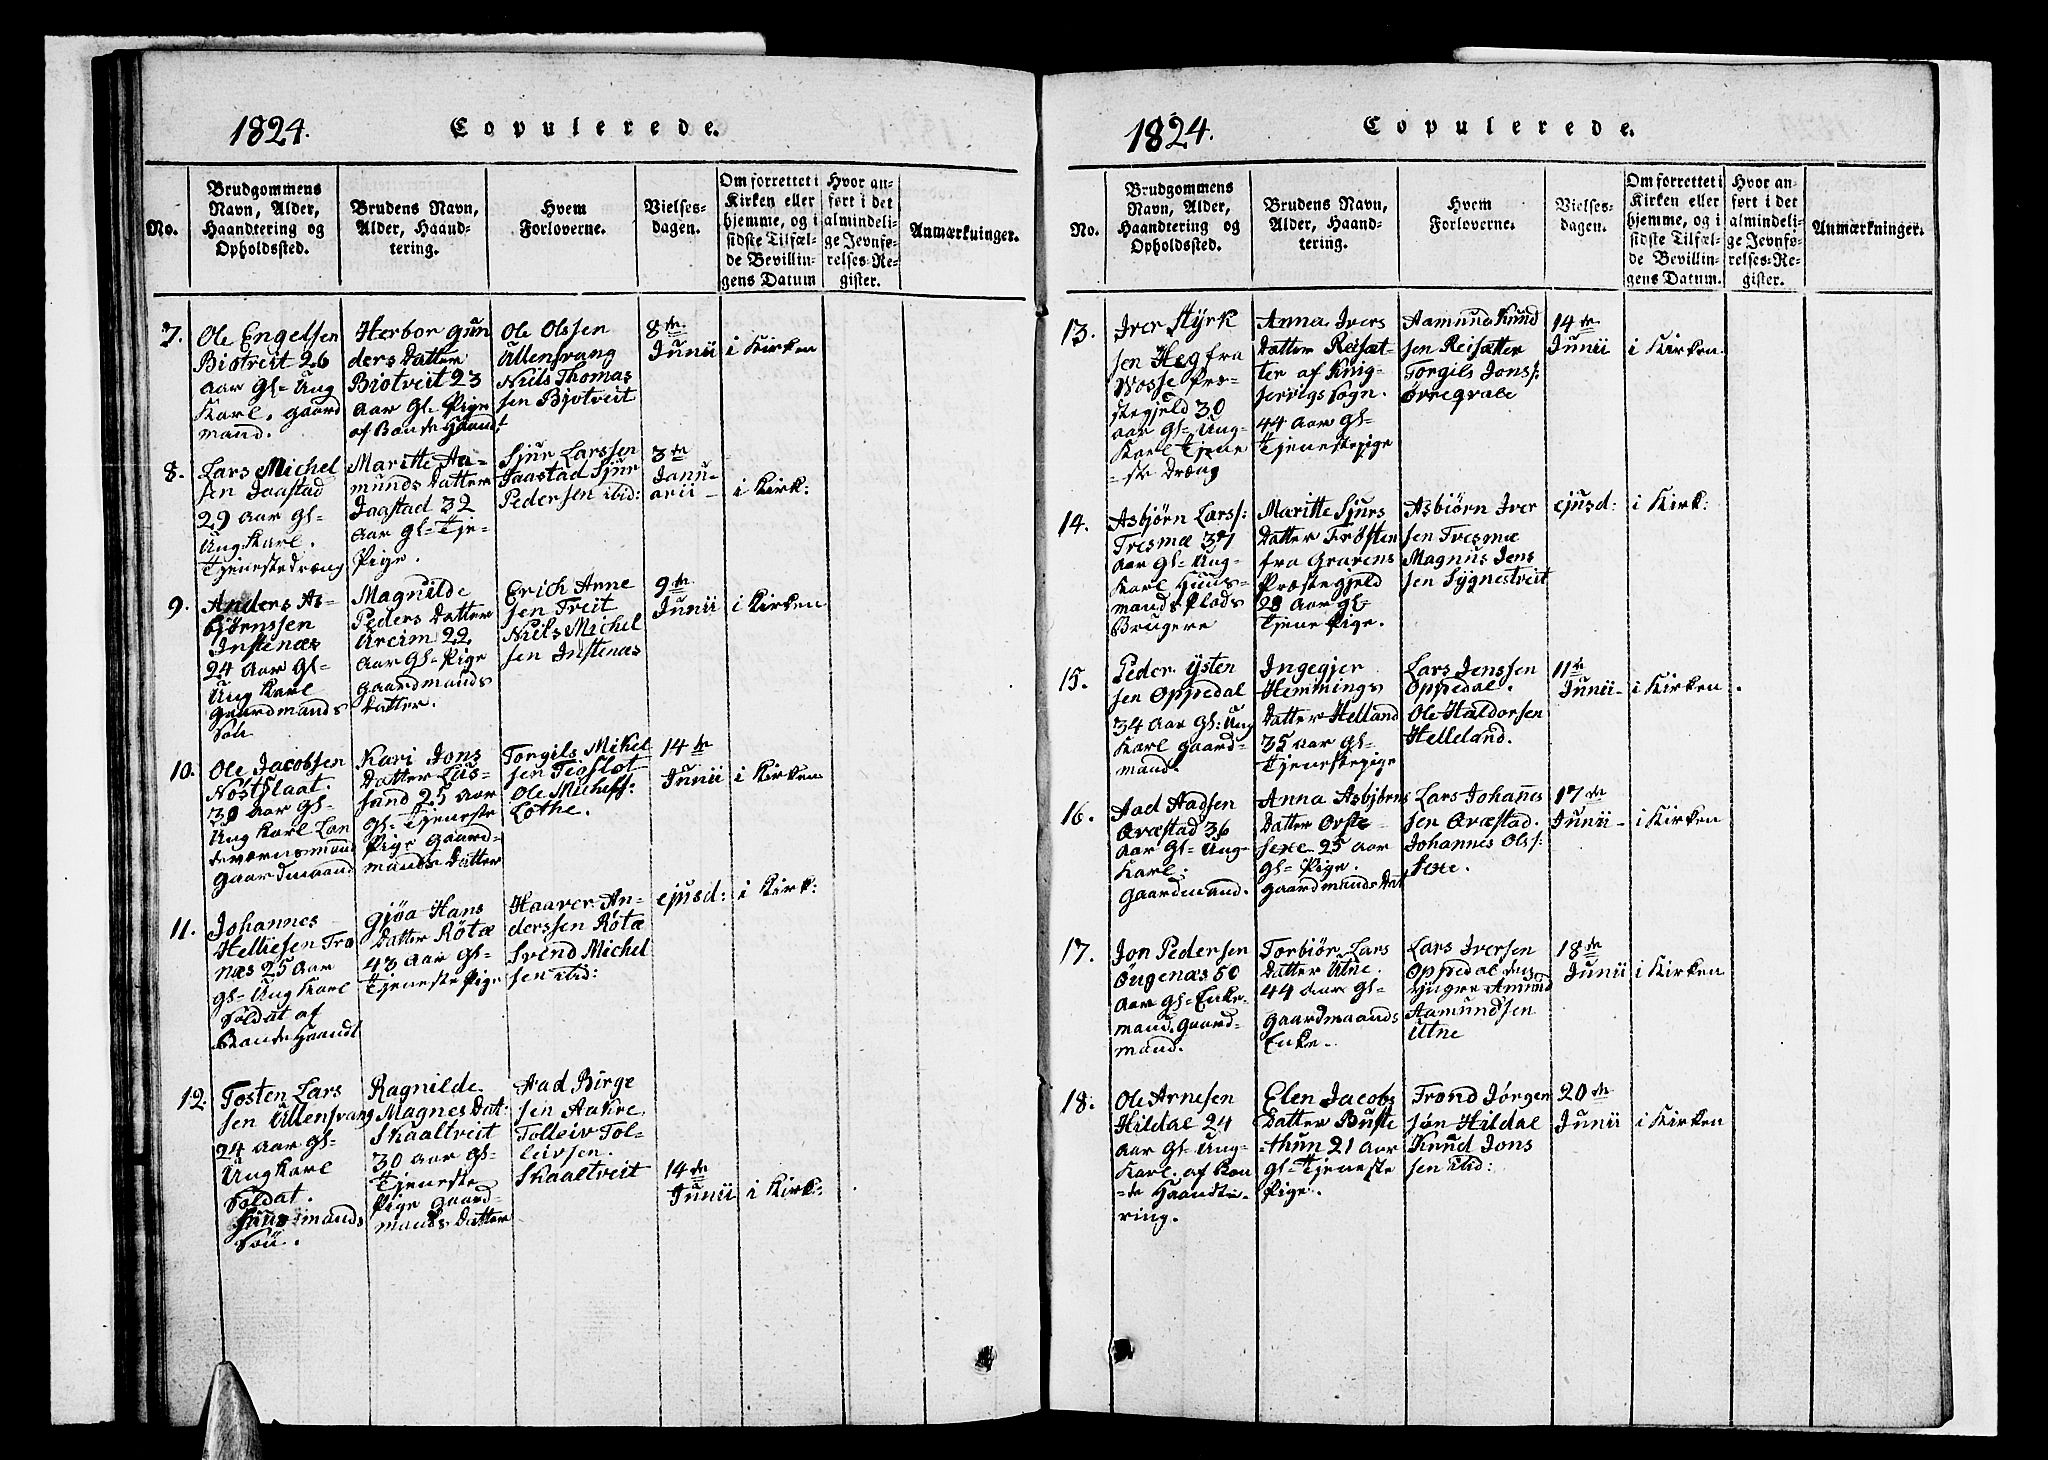 1824. Copulerede.
No.
Brudgommens
Navn, Alder,
Haandtering og
Opholdssted.
Brudens Navn,
Alder, Haand-
tering.
Hvem
Forloverne.
Vielses-
dagen.
Om forrettet i
Kirken eller
hjemme, og i
sidste Tilfæl-
de Bevillin-
gens Datum
Hvor an-
ført i det
almindeli-
ge Jevnfø-
relses-Re-
gister.
Anmærkninger.
7.
Ole Engelsen
Biotveit 26
aar Gl- Ung
Karl. gaard
mand.
Herbor Gun
ders Datter
Biotveit 23
aar Gl- Pige
af Bonde Haand
Ole Olssen
Ullensvang
Niels Thomas
sen Bjotveit
8de
Junii
i Kirken
8.
Lars Michel
sen Jaastad
29 aar Gl-
Ung Karl.
Tjenestedræng
Maritte Aa-
munds Datter
Jaastad 32
aar Gl- Tje-
Pige.
Sjur Larssen
Jaastad Sjur
Pedersen ibid:
3de
Janu-
arii -
i Kirk:
9.
Anders As-
bjørnssen
Instenæs
24 aar Gl-
Ung Karl
Gaardmands
Søn
Magnilde
Peders Datter
Ureim 22
aar Gl- Pige
Gaardmands
Datter.
Erich Arne
sen Freit
Niels Michel
sen Instenæs
9de
Junii
i Kirken
10.
Ole Jacobsen
Nostflaat.
30 aar Gl-
Ung Karl Lan
deværnsmand
Gaardmaand
Kari Jons
Datter Lus-
sand 25 aar
Gl- Tjeneste
Pige Gaard-
mands Datter
Torgils Mikel
sen Tioflot
Ole Michels:
Lothe.
14de
Junii
i Kirken
11.
Johannes
Helliesen Tro
næs 25 aar
Gl- Ung Karl
Soldat af
Bonde Haandt
Gjøa Hans
Datter Røtæ
43 aar Gl-
Tjeneste Pige
Haaver An-
derssen Røtæ
Svend Michel
sen ibid:
ejusd:
i Kirk:
12.
Tosten Lars
sen Ullensvang
24 aar Gl-
Ung Karl
Soldat.
Huusmands
Søn.
Ragnilde
Magnes Dat:
Skaaltveit
30 aar Gl-
Tjeneste
Pige Gaard-
mands Datter
Aad Birge
sen Aakre
Tolleiv Tol-
leivsen.
Skaaltveit
14de
Junii
i Kirk:
1824. Copulerede.
No.
Brudgommens
Navn, Alder,
Haandtering og
Opholdssted.
Brudens Navn,
Alder, Haand-
tering.
Hvem
Forloverne.
Vielses-
dagen.
Om forrettet i
Kirken eller
hjemme, og i
sidste Tilfæl-
de Bevillin-
gens Datum.
Hvor an-
ført i det
almindeli-
ge Jevnfø-
relses-Re-
gister.
Anmærkninger.
13.
Iver Styrk
sen Heg fra
Vosse Præ-
stegjeld 30
aar Gl- Ung-
Karl Tjene
ste Dræng
Anna Ivers
Datter Reisæt-
ter af King-
servigs Sogn.
44 aar Gl-
Tjenestepige
Aamund Knud
sen Reisætter
Torgils Jons:
Øvregrave
14de
Junii
i Kirken
14.
Asbjørn Lars:
Tresmæ 37
aar Gl- Ung-
Karl Huus-
mands Plads
Brugere
Maritte Sjurs
Datter Trøsten
fra Gravens
Præstegjeld
29 aar Gl-
Tjene Pige.
Asbiørn Iver
sen Tresmæ
Magnus Jens
sen Sygnestveit
ejusd:
i Kirk:
15.
Peder Ysten
sen Oppedal
34 aar Gl: Ung
Karl Gaard-
mand.
Ingegjer
Hemmings
Datter Helland
35 aar Gl-
Tjenestepige
Lars Jenssen
Oppedal.
Ole Haldorsen
Helleland.
11te
Junii -
i Kirken
16.
Aad Aadsen
Qvæstad 36
aar Gl- Ung-
Karl:
Gaardmand.
Anna Asbjørns
Datter Ovste-
sexe 25 aar
Gl- Pige.
Gaardmands Dat
Lars Johannes
sen Qvæstad.
Johannes Ols:
Sexe.
17de
Junii -
i Kirken
17.
Jon Pedersen
Øugenæs 50
aar Gl- Enke-
mand Gaard-
mand.
Torbiør Lars
Datter Utne.
44 aar Gl-
Gaardmaands
Enke.
Lars Iversen
Oppedal den
yngre Amund
Aamundsen
Utne
18de
Junii
i Kirken
18.
Ole Arnesen
Hildal 24
aar Gl- Ung-
Karl. af Bon
-de Haandte-
ring.
Elen Jacobs
Datter Buste
-thun 21 aar
Gl- Tjeneste
Pige.
Trond Jørgen
søn Hildal
Knud Jons
sen ibid:
20de
Junii
i Kirken